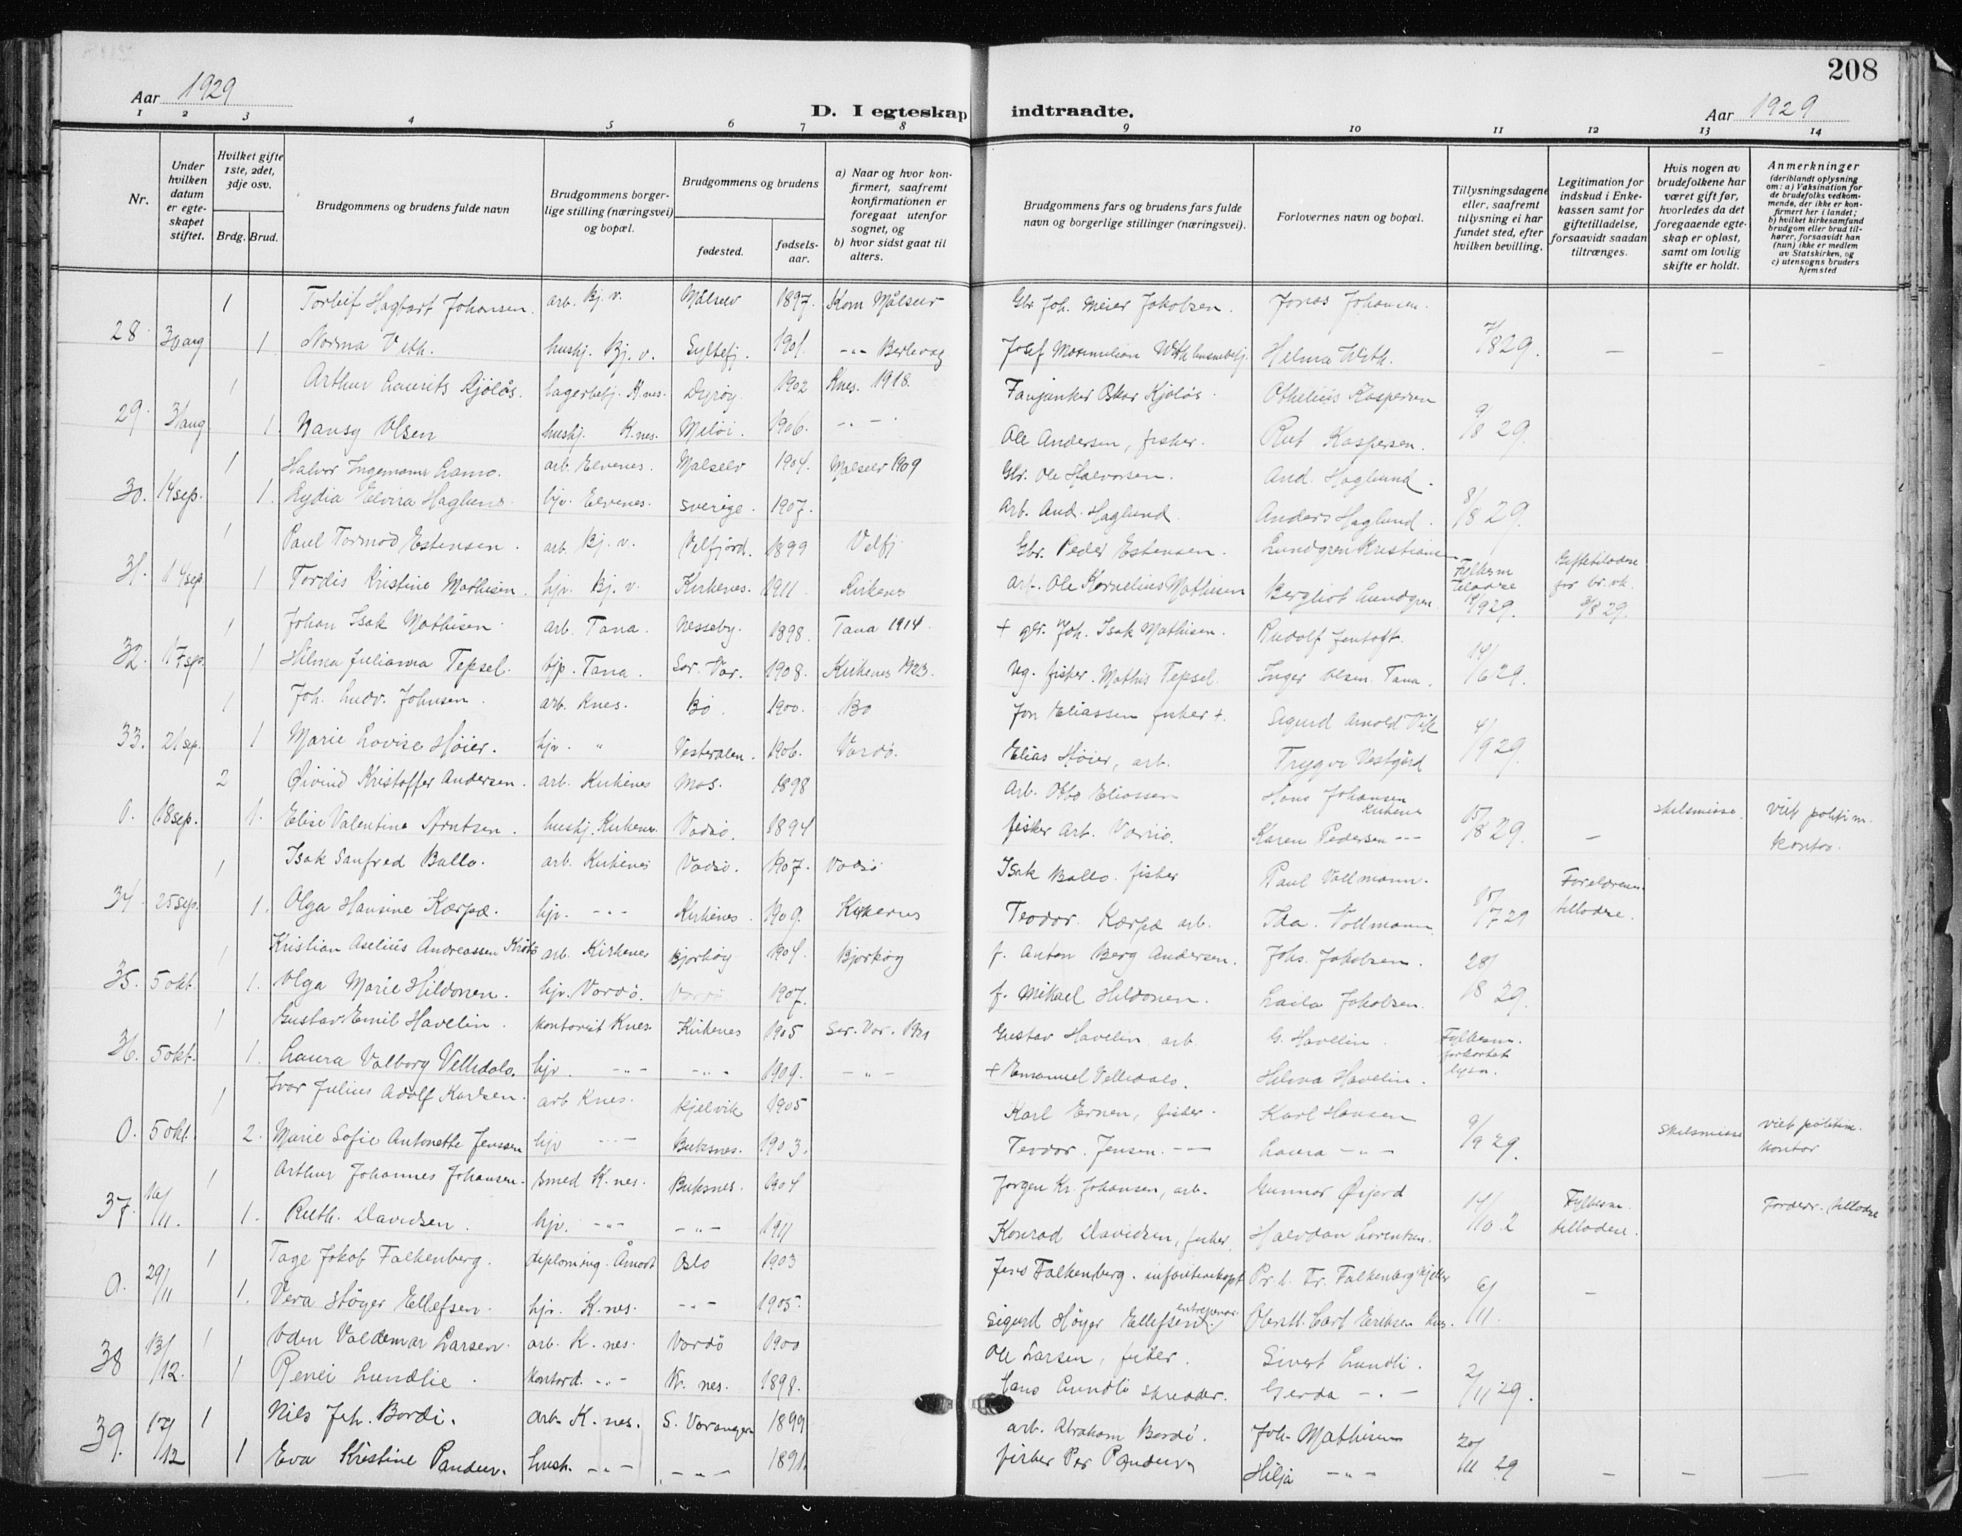 208
Aar 1929
D. I egteskap indtraadte.
Aar 1929
1 2 3 4 5 6 7 8 9 10 11 12 13 14
Nr.
Under hvilken datum er egteskapet stiftet.
Hvilket gifte 1ste, 2det, 3dje osv.
Brdg. Brud.
Brudgommens og brudens fulde navn
Brudgommens borgerlige stilling (næringsvei) og bopæl.
Brudgommens og brudens
fødested.
fødselsaar.
a) Naar og hvor konfirmert, saafremt konfirmationen er foregaat utenfor sognet, og
b) hvor sidst gaat til alters.
Brudgommens fars og brudens fars fulde navn og borgerlige stillinger (næringsvei).
Forlovernes navn og bopæl.
Tillysningsdagene eller, saafremt tillysning ei har fundet sted, efter hvilken bevilling.
Legitimation for indskud i Enkekassen samt for giftetilladelse, forsaavidt saadan tiltrænges.
Hvis nogen av brudefolkene har været gift før, hvorledes da det foregaaende egteskap er opløst, samt om lovlig skifte er holdt.
Anmerkninger
(deriblandt oplysning om: a) Vaksination for de brudefolks vedkommende, der ikke er konfirmert her i landet; b) hvilket kirkesamfund brudgom eller brud tilhører, forsaavidt han (hun) ikke er medlem av Statskirken, og c) utensogns bruders hjemsted
1 Torleif Hagbart Johansen arb. Bj. v. Målselv 1897. Kom Målselv Gbr. Joh. Meier Jakobsen. Jonas Johansen.
28. 30 aug 1. Norma Veth. hushj. Bj. v. Syltefj. 1901. -"- Berlevag Josef Maximilian Helma With. 7/8 29. — —
1 Arthur Laurits Kjølås. Lagerbetj. K.nes. Dyrøy. 1902 Knes. 1918. Fanjunker Oskar Kjølås. Othelius Kaspersen
29. 31 aug 1. Nansy Olsen hushj. K.nes. Meløi. 1906. -"- Ole Andersen, fisker. Rut Kaspersen. 9/8 29.
1 Halvor Ingemann Lamo. arb. Elvenes. Malselv 1904. Malselv 1909 Gbr. Ole Halvorsen. And. Haglund.
30. 14 sep. 1. Lydia Elvira Haglund. hjv. Elvenes. Sverige. 1907. Arb. And. Haglund. Anders Haglund. 8/8 29.
1 Paul Tormod Estensen. arb. Bj. v. Velfjord. 1899 Velfj Gbr. Peder Estensen. Lundgren Kristiansen
31. 14 sep 1 Tordis Kristine Mathisen. hjv. Bj. v. Kirkenes. 1911. Kirkenes arb. Ole Kornelius Mathisen Bergliot Lundgren. 29. 29.
1 Johan Isak Mathisen. arb. Tana. Nesseby. 1898. Tana 1914. + gbr. Joh. Isak Mathisen. Rudolf Jentoft.
32. 17 sep. 1 Hilma Julianna Tepsel. hjv. Tana. Sør-Var. 1908. Kirkenes 1923. Ug. fisker. Mathis Tepsel. Inger Olsen Tana. 14/6 29.
1 Joh. Ludv. Johnsen. arb. Knes. Bø 1900. Bø Jon Eliassen fisker +. Sigurd Arnold Vik
33. 21 sep. 1 Marie Lovise Høier. hjv. " Vesterålen. 1906. Vardø. Elias Høier, arb. Trygve Vestgård 4/9 29.
2 Øivind Kristoffer Andersen. arb. Kirkenes Mos. 1898 Arb. Otto Eliassen Hans Johansen Kirkenes
0. 18 sep. 1. Elise Valentine Arntsen. hushj. Kirkenes Vadsø. 1894 fisker Karen Pedersen -"- 15/8 29. — skilsmisse. viet politim. kontor.
1 Isak Sanfred Ballo. arb. Kirkenes Vadsø. 1907. Vadsø Isak Ballo. fisker Paul Vollmann.
34. 25 sep. 1. Olga Hansine Karpæ. hjv. -"- Kirkenes. 1909. Kirkenes Teodor. Karpæ arb. Ida. Vollmann. 29
1 Kristian Aselius Andreassen arb. Kirkenes Bjarkøy 1904. Bjarkøy f. Anton Berg Andersen. Johs. Jakobsen.
35. 5 okt. 1. Olga Marie Hildonen. hjv. Vardø. Vardø 1907. f. Mikael Hildonen. Laila Jakobsen. 28/8 29.
1 Gustav Emil Havelin. kontorist Knes. Kirkenes 1905 Sør-Var. 1921 Gustav Havelin arb. G. Havelin.
36. 5 okt. 1. Laura Valborg Velledalo. hjv. -"- -"- 1909. -"- + Emanuel Velledalo. Helma Havelin.
1 Ivar Julius Adolf Karlsen. arb Knes. Kjelvik 1905 Karl Ernen, fisker. Karl Hansen
0. 5 okt. 2. Marie Sofie Antonette Jenssen hjv -"- Buksnes. 1903. Teodor. Jensen. -"- Laura -"- 9/9 29. skilsmisse viet politim. kontor
1 Arthur Johannes Johansen. smed K.nes. Buksnes. 1904 Jørgen Kr. Johansen, arb. Gunnar Øijord
37. 16/11. 1. Ruth. Davidsen. hjv. -"- -"- 1911 Konrad Davidsen, fisker. Halvdan Lorentzen.
1 Tage Jakob Falkenberg. Oslo 1903 Jens Falkenberg.
0. 29/11 1. Vera Høyer Ellefsen. hjv. K.nes. -"- 1905. Sigurd Høyer Ellefsen entreprenør 6/11. —
1 Oden Valdemar Larsen. arb. K. nes. Vardø 1900 Ole Larsen, fisker. Sivert Lundli.
38 13/12. 1 Renei Lundlie. kontord. -"- K. nes. 1898. Hans Lundli skredder. Gerda -"- 2/11 29.
1 Nils Joh. Bordi. arb. K. nes. S. Varanger 1899 arb. Abraham Bordi. Joh. Mathisen
39. 17/12 1 Eva Kristine Pandur. hush. -"- -"- 1891. fisker Per Pandur Hilja -"- 20/11 29 — — —